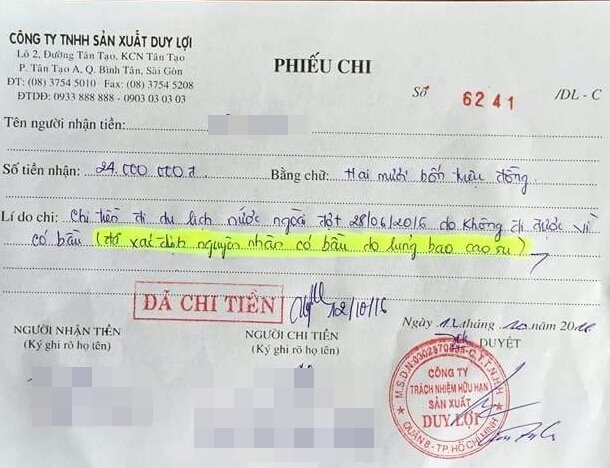 CÔNG TY TNHH SẢN XUẤT DUY LỢI
Lô 2, Đường Tân Tạo, KCN Tân Tạo
P. Tân Tạo A, Q. Bình Tân, Sài Gòn
ĐT: (08) 3754 5010 Fax: (08) 3754 5208
ĐTDĐ: 0933 888 888 - 0903 03 03 03
PHIẾU CHI
Số 6241 /DL - C
Tên người nhận tiền:
Số tiền nhận: 24.000.000đ Bằng chữ: Hai mươi bốn triệu đồng.
Lí do chi: Chi tiền đi du lịch nước ngoài đợt 28/06/2016 do không đi được vì
có bầu (đã xác định nguyên nhân có bầu do lủng bao cao su)
ĐÃ CHI TIỀN 12/10/16
Ngày 12 tháng 10 năm 2016
NGƯỜI NHẬN TIỀN NGƯỜI CHI TIỀN DUYỆT
(Ký ghi rõ họ tên) (Ký ghi rõ họ tên)
CÔNG TY
TRÁCH NHIỆM HỮU HẠN
SẢN XUẤT
DUY LỢI
QUẬN 8 - TP HỒ CHÍ MINH